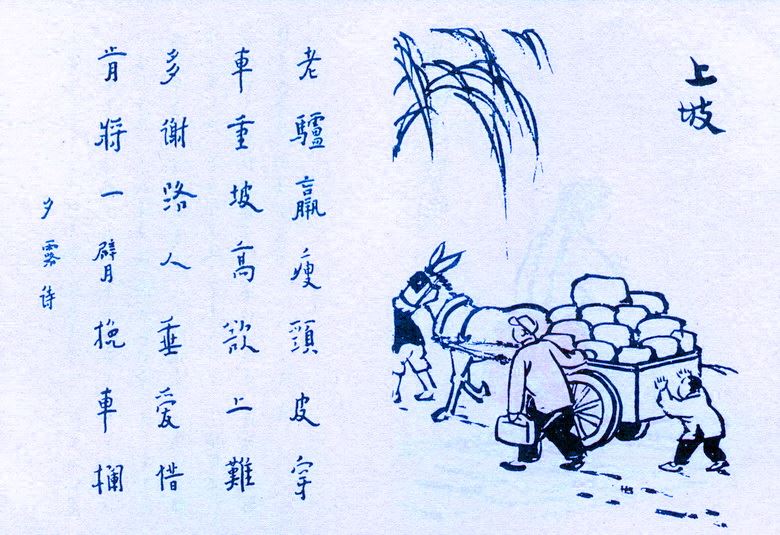 上坡
老驢羸瘦頭皮穿
車重坡高欲上難
多謝路人垂愛惜
肯將一臂挽車欄
夕露詩